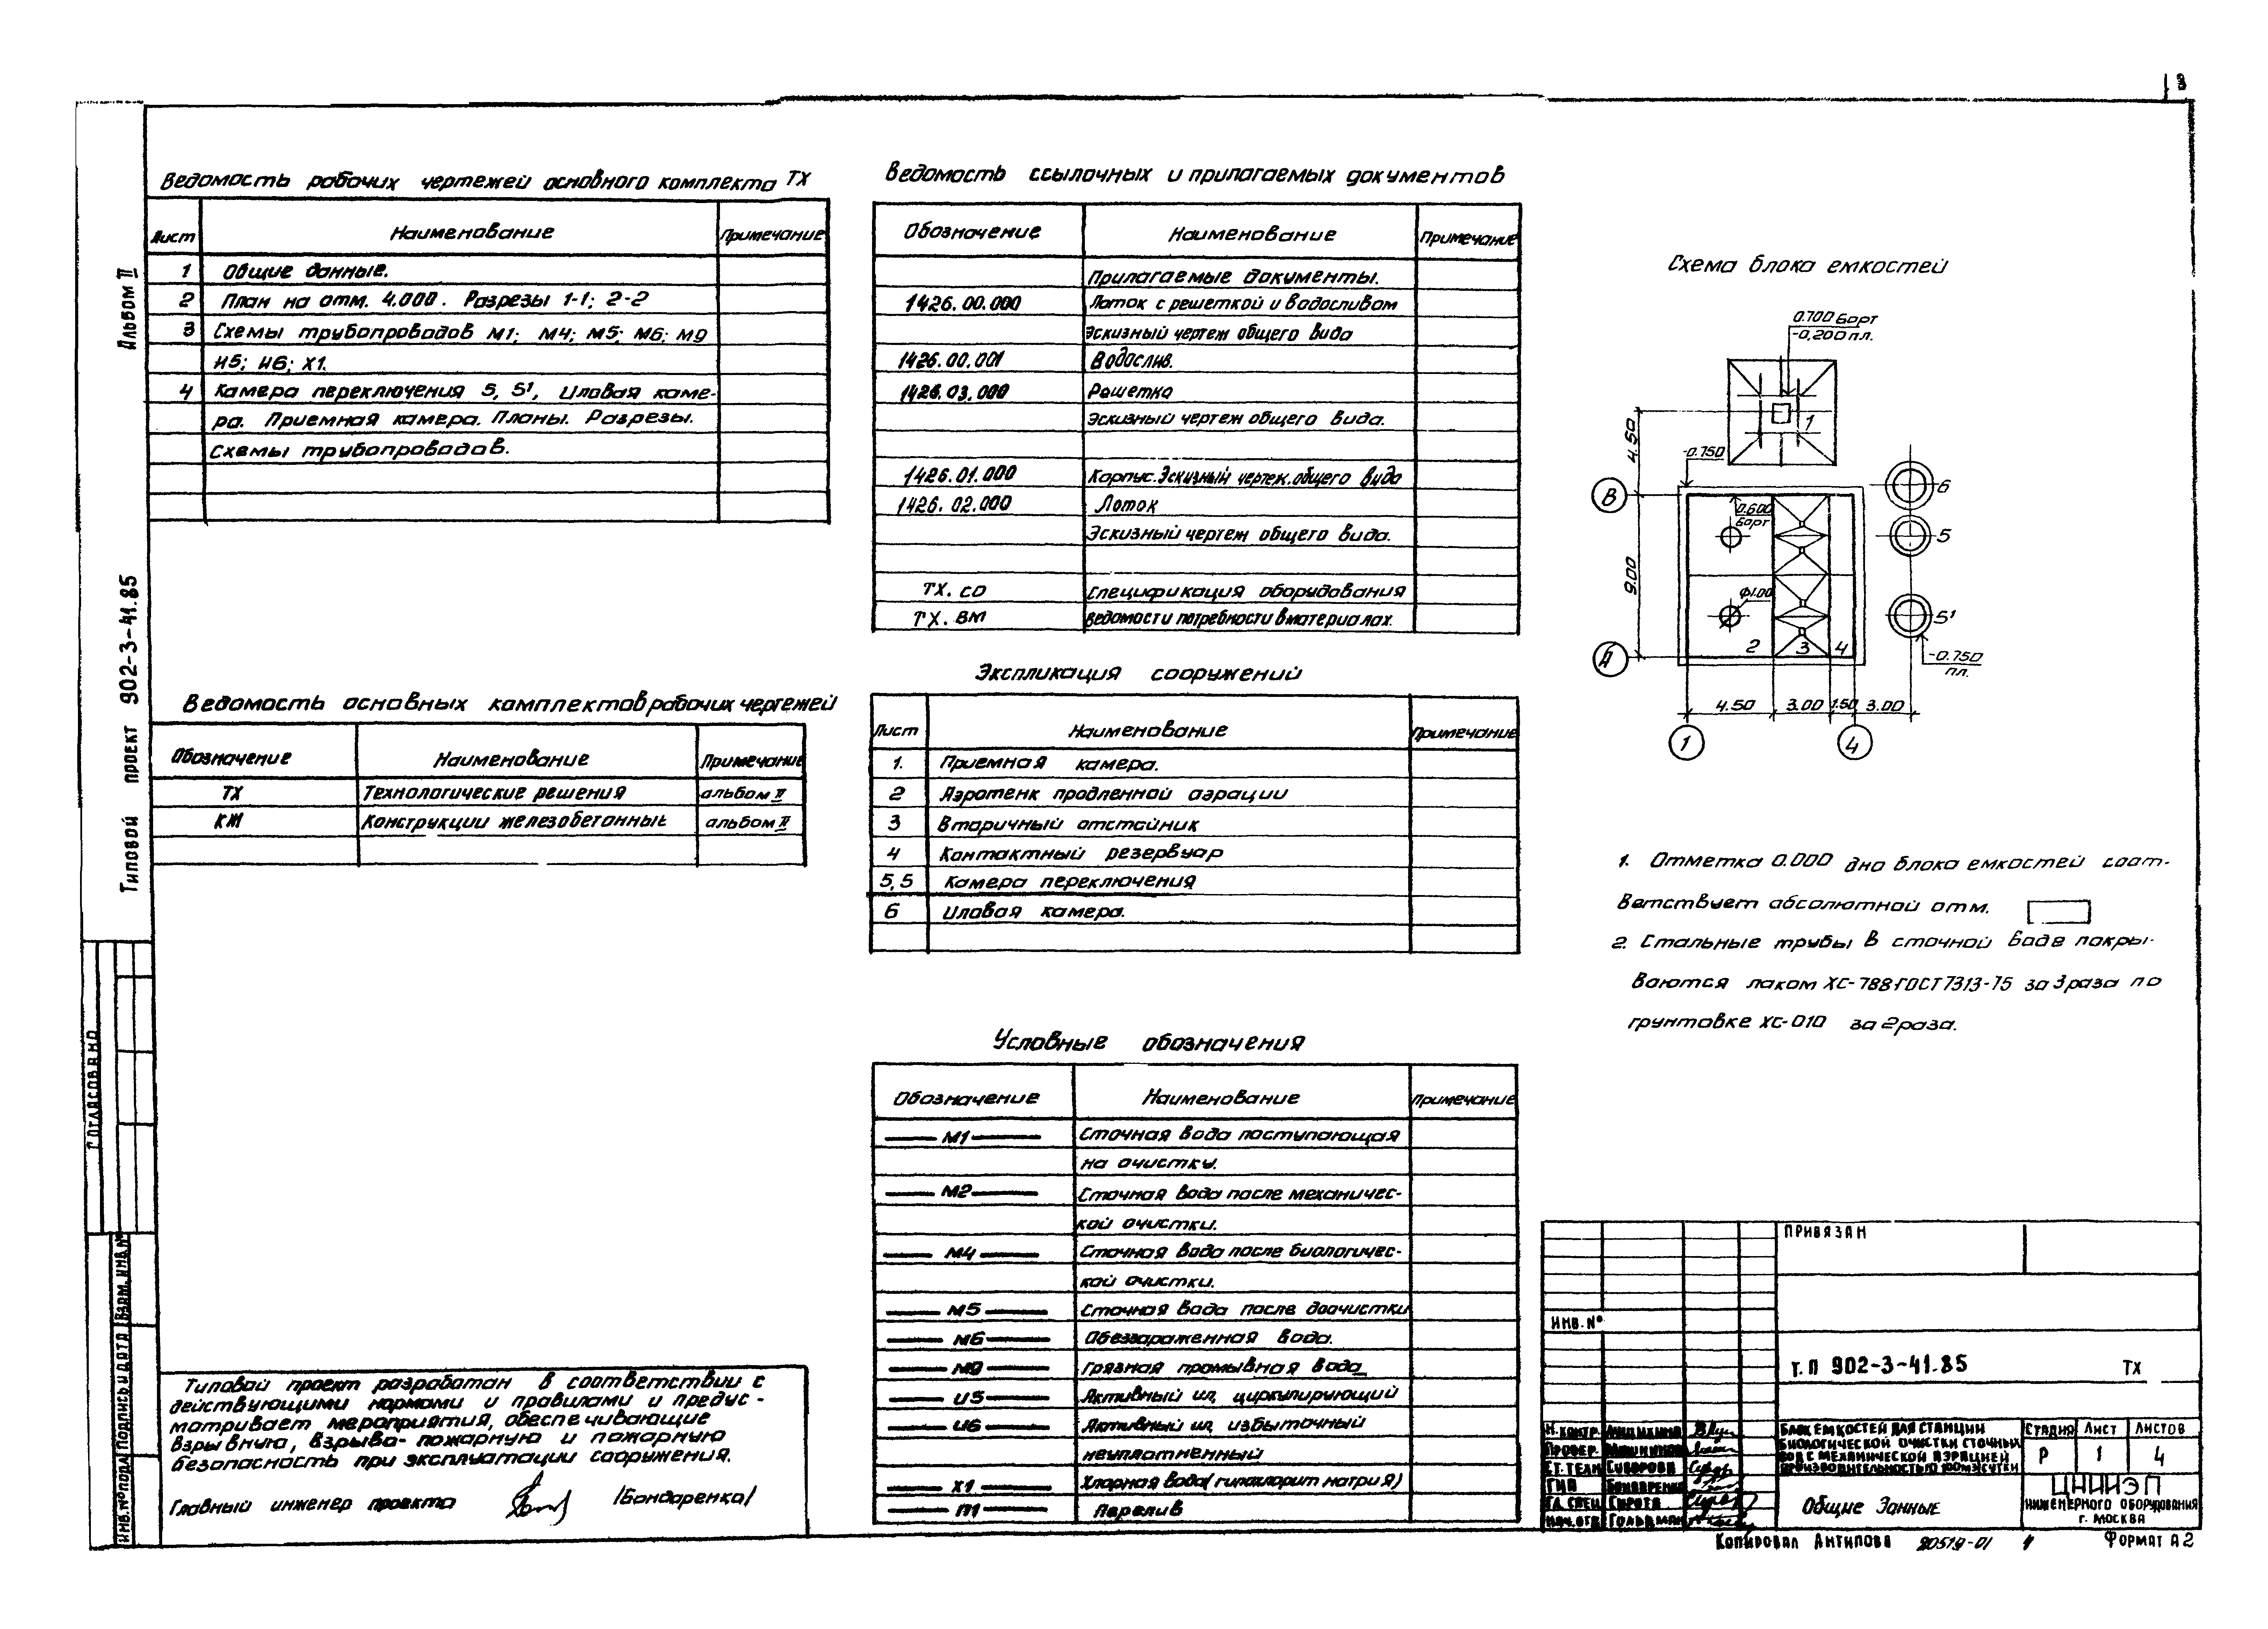 Альбом II
Типовой проект 902-3-41.85
Согласовано
Инв.№подл. Подпись и дата Взам.инв.№
Ведомость рабочих чертежей основного комплекта ТХ
Лист Наименование Примечание
1 Общие данные.
2 План на отм. 4.000. Разрезы 1-1; 2-2
3 Схемы трубопроводов М1; М4; М5; М6; М9
И5; И6; Х1.
4 Камера переключения 5, 5', Иловая каме-
ра. Приемная камера. Планы. Разрезы.
Схемы трубопроводов.
Ведомость основных комплектов рабочих чертежей
Обозначение Наименование Примечание
ТХ Технологические решения альбом II
КЖ Конструкции железобетонные альбом II
Типовой проект разработан в соответствии с
действующими нормами и правилами и предус-
матривает мероприятия, обеспечивающие
взрывную, взрыво-пожарную и пожарную
безопасность при эксплуатации сооружения.
Главный инженер проекта /Бондаренко/
Ведомость ссылочных и прилагаемых документов
Обозначение Наименование Примечание
Прилагаемые документы.
1426.00.000 Лоток с решеткой и водосливом
Эскизный чертеж общего вида
1426.00.001 Водослив.
1426.03.000 Решетка
Эскизный чертеж общего вида.
1426.01.000 Корпус. Эскизный чертеж. общего вида
1426.02.000 Лоток
Эскизный чертеж общего вида.
ТХ.СО Спецификация оборудования
ТХ.ВМ Ведомости потребности в материалах.
Экспликация сооружений
Лист Наименование Примечание
1. Приемная камера.
2 Аэротенк продленной аэрации
3 Вторичный отстойник
4 Контактный резервуар
5,5 Камера переключения
6 Иловая камера.
Условные обозначения
Обозначение Наименование Примечание
М1 Сточная вода поступающая
на очистку.
М2 Сточная вода после механичес-
кой очистки.
М4 Сточная вода после биологичес-
кой очистки.
М5 Сточная вода после доочистки
М6 Обеззараженная вода.
М9 Грязная промывная вода
И5 Активный ил, циркулирующий
И6 Активный ил, избыточный
неуплотненный
Х1 Хлорная вода (гипохлорит натрия)
П1 Перелив
Схема блока емкостей
0.700 борт
-0,200 пл.
1
4.50
-0.750
В
0.600
борт
6
5
9.00
ф1.00
5'
2 3 4
А
-0.750
пл.
4.50 3.00 1.50 3.00
1 4
1. Отметка 0.000 дна блока емкостей соот-
ветствует абсолютной отм.
2. Стальные трубы в сточной воде покры-
ваются лаком ХС-788 ГОСТ 7313-75 за 3 раза по
грунтовке ХС-010 за 2 раза.
Привязан
Инв. №
Т.П 902-3-41.85 ТХ
Н.контр.
Провер.
Ст.техн Суворова
ГИП Бондаренко
Гл.спец Сирота
Нач.отд Гольдман
Блок емкостей для станции
биологической очистки сточных
вод с механической аэрацией
производительностью
Стадия Лист Листов
Р 1 4
Общие данные
ЦНИИЭП
инженерного оборудования
г. Москва
Копировал Антипова 20519-01 4 Формат А2